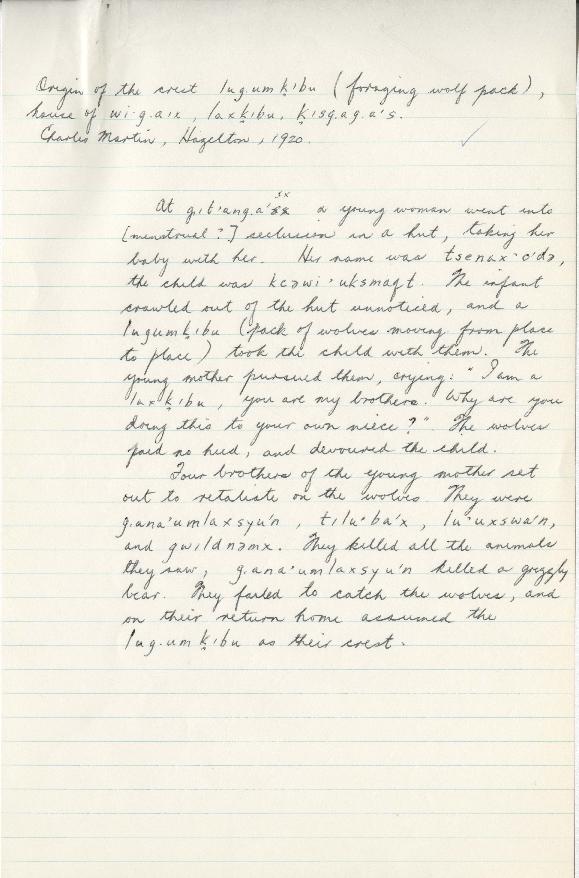 Origin of the crest lug.umḳibu (foraging wolf pack),
house of wi·g.a·ix, laxḳibu, ḳisg.ag.a's.
Charles Martin, Hazelton, 1920.
At g.it·ang.a' a young woman went into
[menstrual?] seclusion in a hut, taking her
baby with her. Her name was tsenax·o'də,
the child was kcəwi·uksmaqt. The infant
crawled out of the hut unnoticed, and a
lugumḳibu (pack of wolves moving from place
to place) took the child with them. The
young mother pursued them, crying: "I am a
laxḳibu, you are my brothers. Why are you
doing this to your own niece?" The wolves
paid no heed, and devoured the child.
Four brothers of the young mother set
out to retaliate on the wolves. They were
g.ana'umlaxsyu'n, tilu·ba'x, lu·uxswa'n,
and gwildnəmx. They killed all the animals
they saw, g.ana'umlaxsyu'n killed a grizzly
bear. They failed to catch the wolves, and
on their return home assumed the
lug.umḳibu as their crest.